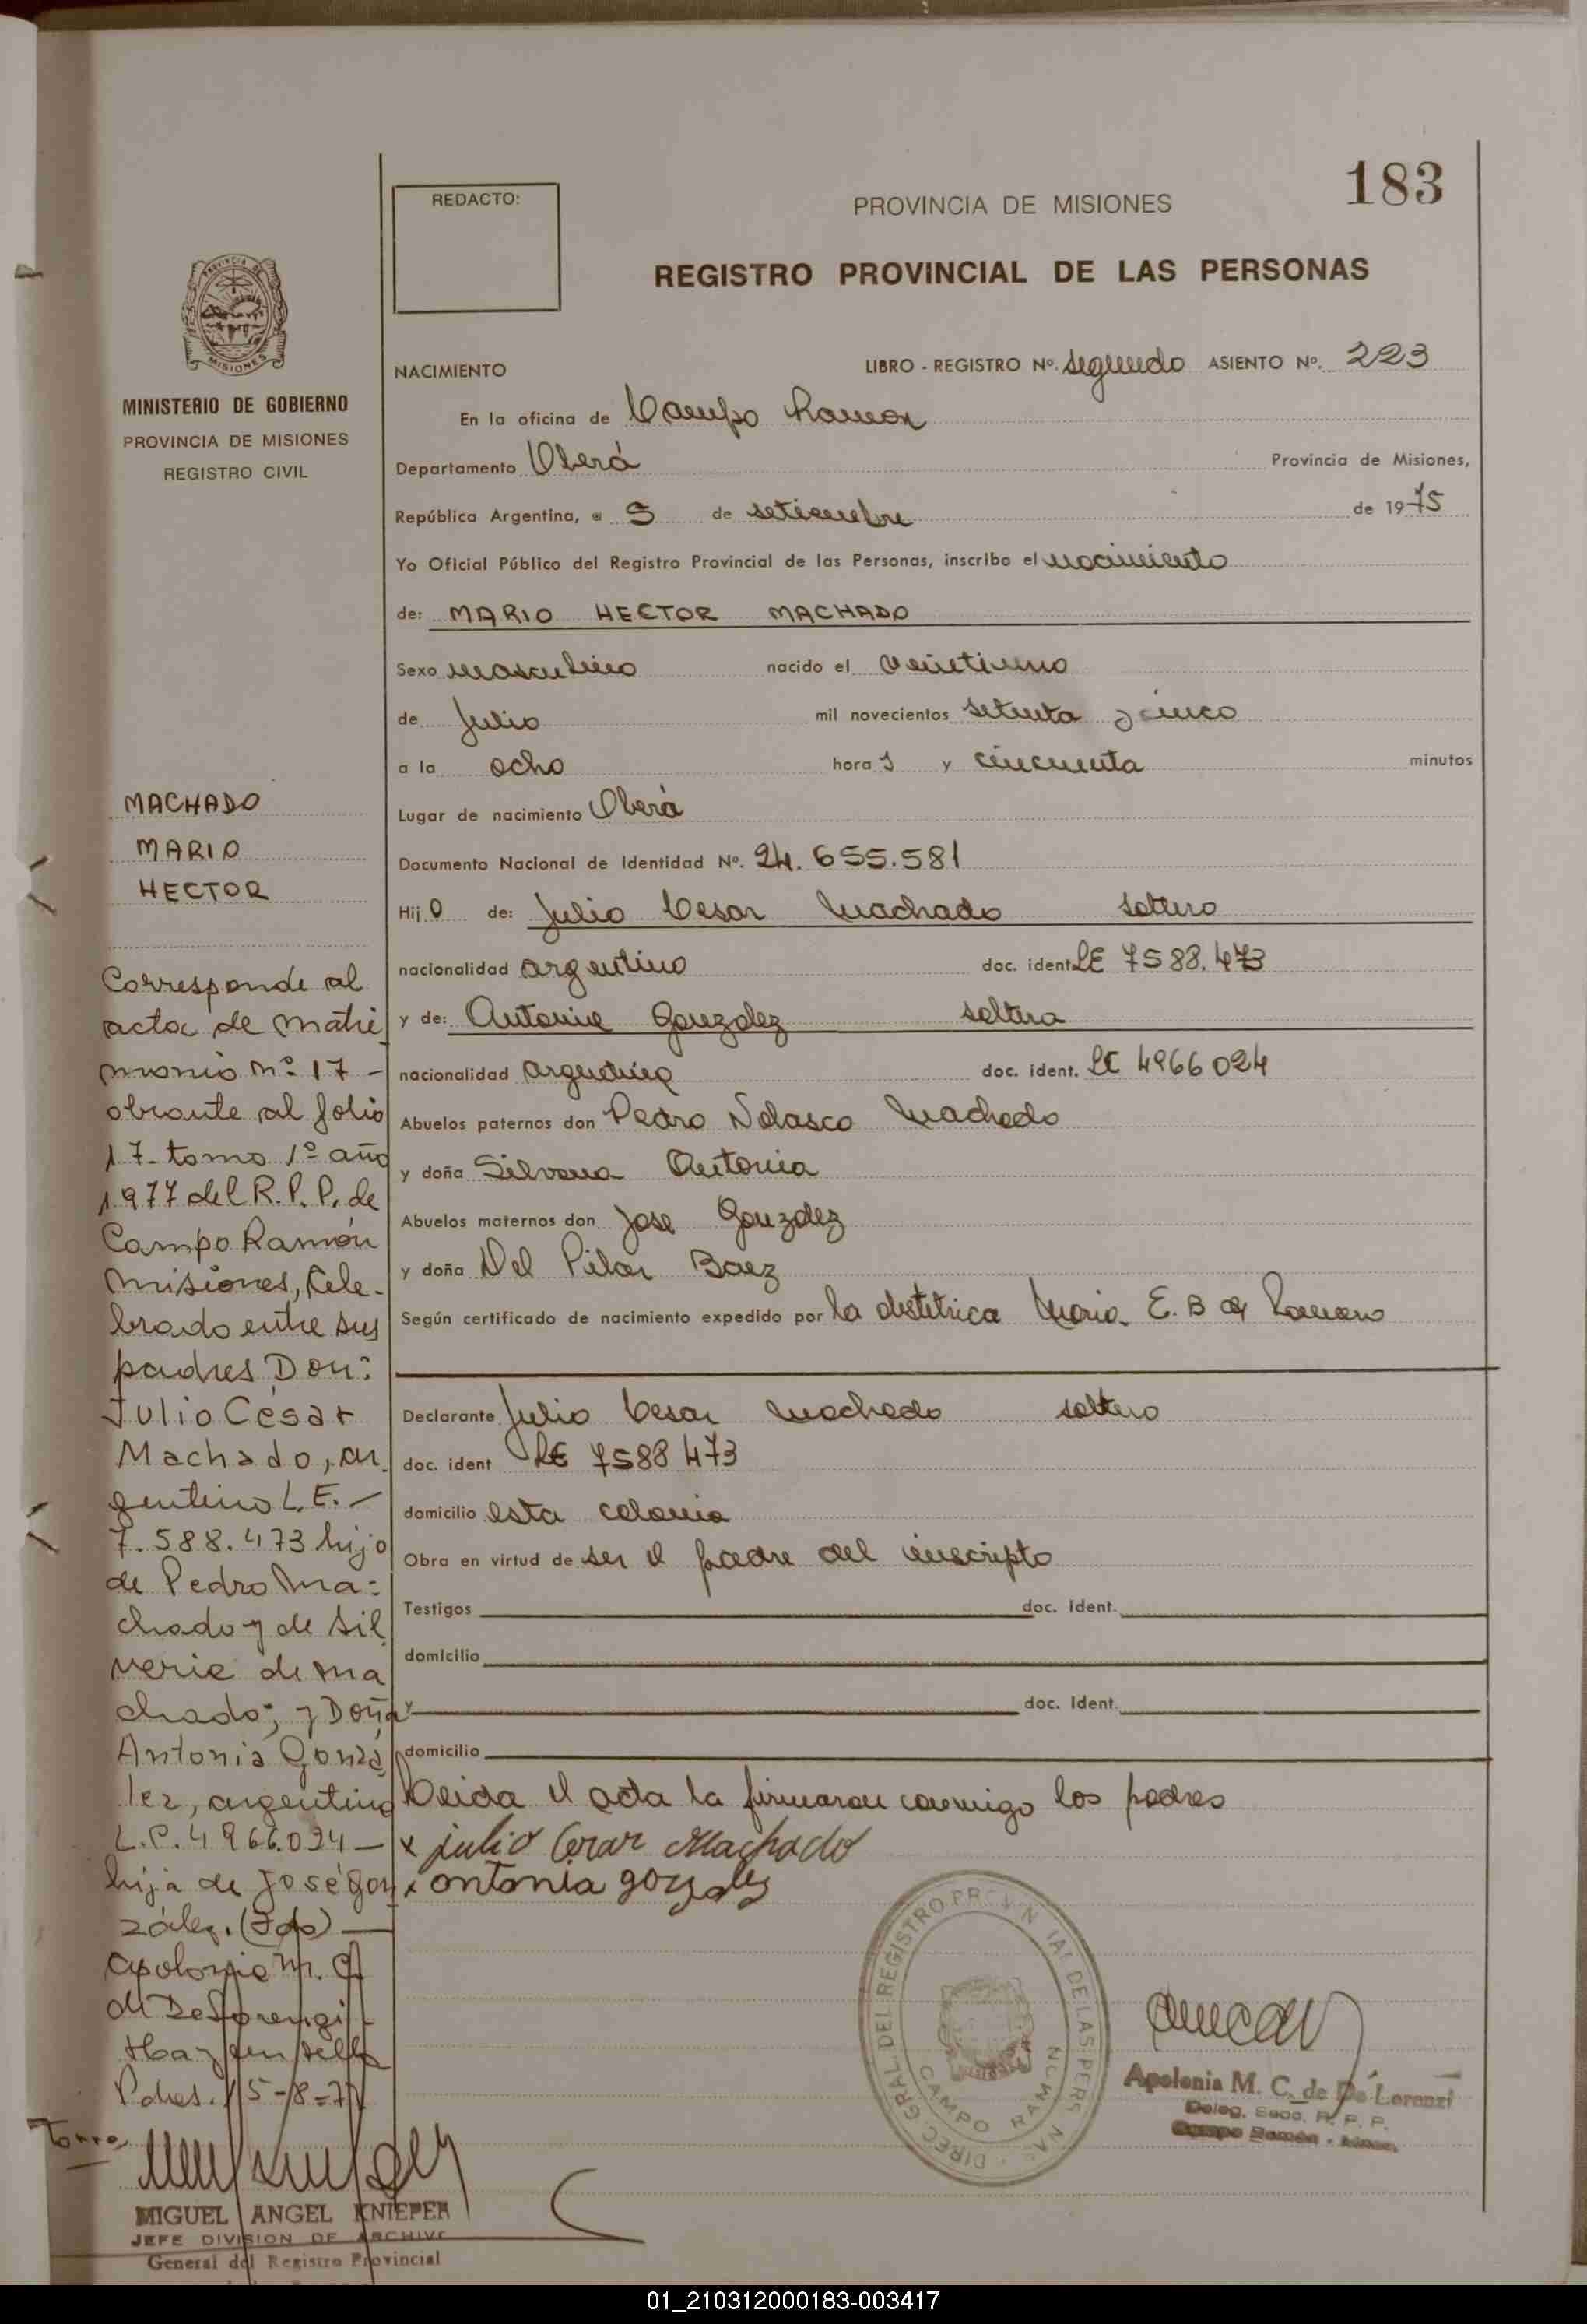 183
REDACTO:
PROVINCIA DE MISIONES
REGISTRO PROVINCIAL DE LAS PERSONAS
PROVINCIA DE
MISIONES
MINISTERIO DE GOBIERNO
PROVINCIA DE MISIONES
REGISTRO CIVIL
NACIMIENTO LIBRO - REGISTRO Nº. segundo ASIENTO Nº. 223
En la oficina de Campo Ramon
Departamento Oberá Provincia de Misiones,
República Argentina, a 5 de setiembre de 1975
Yo Oficial Público del Registro Provincial de las Personas, inscribo el nacimiento
de: MARIO HECTOR MACHADO
Sexo masculino nacido el veintiuno
de Julio mil novecientos setenta y cinco
a la ocho horas y cincuenta minutos
Lugar de nacimiento Oberá
Documento Nacional de Identidad Nº. 24.655.581
Hijo de: Julio Cesar Machado soltero
nacionalidad argentino doc. ident. LE 7588.473
y de: Antonia Gonzalez soltera
nacionalidad argentina doc. ident. LC 4966024
Abuelos paternos don Pedro Nolasco Machado
y doña Silvana Antonia
Abuelos maternos don Jose Gonzalez
y doña Del Pilar Baez
Según certificado de nacimiento expedido por la obstetrica Maria E. B de Romero
Declarante Julio Cesar Machado soltero
doc. ident LE 7588473
domicilio esta colonia
Obra en virtud de ser el padre del inscripto
Testigos doc. ident.
domicilio
y doc. ident.
domicilio
Leida el acta la firmaron conmigo los padres
x julio Cesar Machado
x antonia gonzalez
MACHADO
MARIO
HECTOR
Corresponde al
acta de matri
monio nº 17 -
obrante al folio
17 - tomo 1º año
1977 del R.P.P. de
Campo Ramón
Misiones, cele-
brado entre sus
padres Don:
Julio César
Machado, ar
gentino L.E. -
7.588.473 hijo
de Pedro Ma=
chado y de Sil
veria de Ma
chado; y Doña
Antonia Gonzá
lez, argentina
L.C. 4966.024 -
hija de José Gon
zález. (Fdo) -
Apolonia M. C.
de De Lorenzi -
Hay un sello
Pdas. 15-8-77
MIGUEL ANGEL KNIEPER
JEFE DIVISION DE ARCHIVO
General del Registro Provincial
DIREC. GRAL DEL REGISTRO PROVINCIAL DE LAS PERSONAS
CAMPO RAMON
Apolonia M. C. de De Lorenzi
Deleg. Secc. R. P. P.
Campo Ramón - Mnes.
01_210312000183-003417